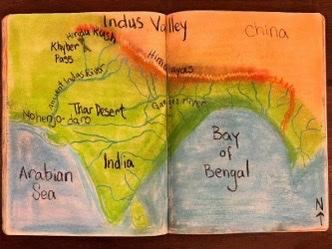 Indus Valley
China
Hindu Kush
Khyber
Pass
Himalayas
Ancient Indus River
Ganges River
Thar Desert
Mohenjo-daro
India
Bay
of
Bengal
Arabian
Sea
N